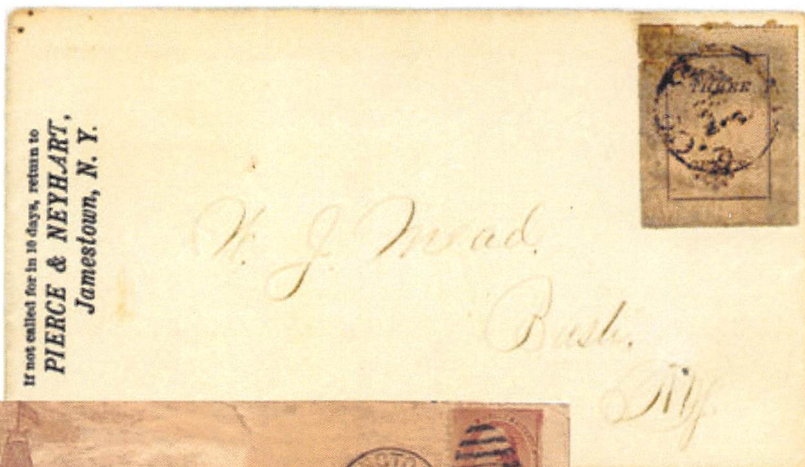 If not called for in 10 days, return to
PIERCE & NEYHART,
Jamestown, N. Y.
THREE
W. J. Mead.
Busti.
NY.